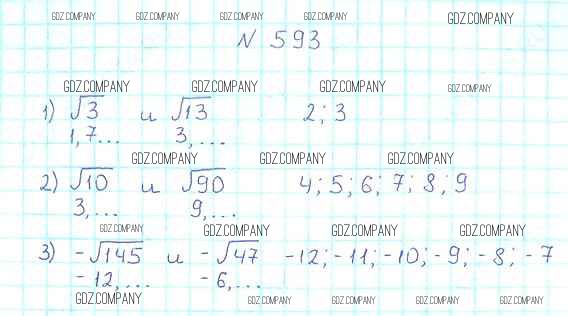 GDZ.COMPANY GDZ.COMPANY GDZ.COMPANY GDZ.COMPANY GDZ.COMPANY GDZ.COMPANY
N 593
GDZ.COMPANY GDZ.COMPANY GDZ.COMPANY GDZ.COMPANY
1) √3 и √13 2; 3
1,7... 3,...
GDZ.COMPANY GDZ.COMPANY GDZ.COMPANY
2) √10 и √90 4; 5; 6; 7; 8; 9
3,... 9,...
GDZ.COMPANY GDZ.COMPANY GDZ.COMPANY GDZ.COMPANY
3) -√145 и -√47 -12; -11; -10; -9; -8; -7
-12,... -6,...
GDZ.COMPANY GDZ.COMPANY GDZ.COMPANY GDZ.COMPANY GDZ.COMPANY